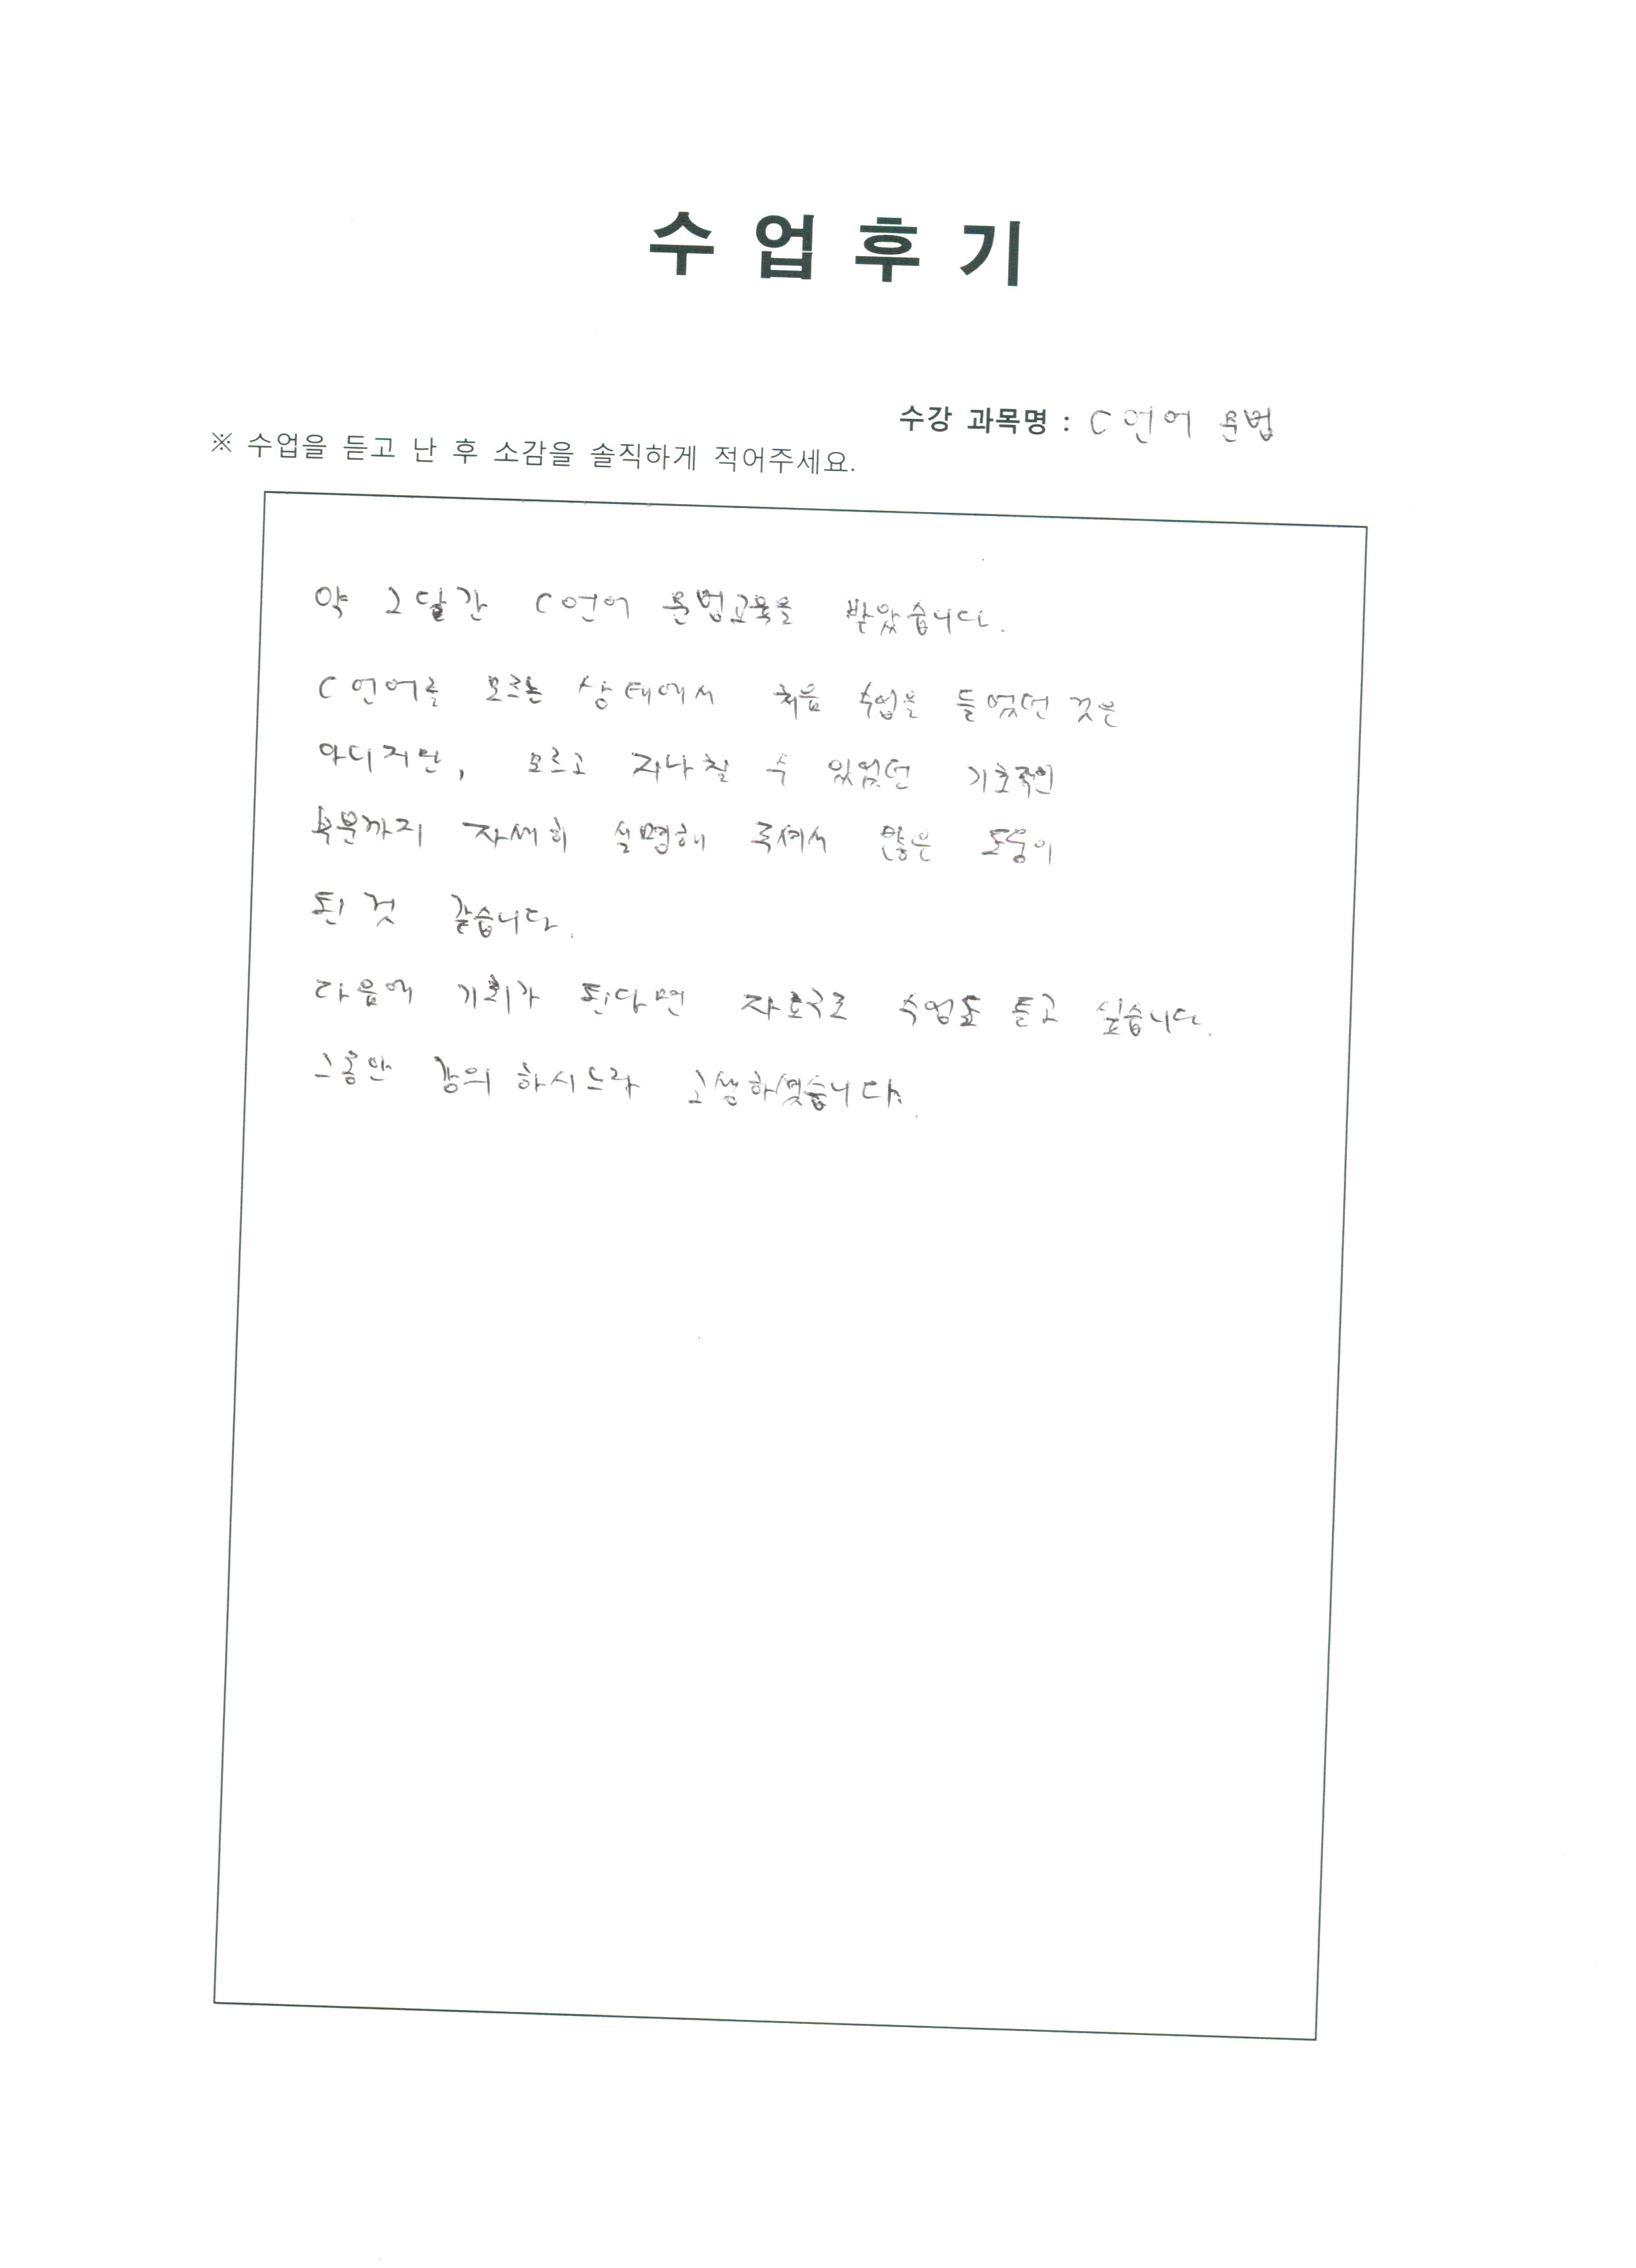 수 업 후 기
수강 과목명 : C언어 문법
※ 수업을 듣고 난 후 소감을 솔직하게 적어주세요.
약 2달간 C언어 문법교육을 받았습니다.
C언어를 모르는 상태에서 처음 수업을 들었던 것은
아니지만, 모르고 지나칠 수 있었던 기초적인
부분까지 자세히 설명해 주셔서 많은 도움이
된 것 같습니다.
다음에 기회가 된다면 자료구조 수업도 듣고 싶습니다.
그동안 강의 하시느라 고생하셨습니다.